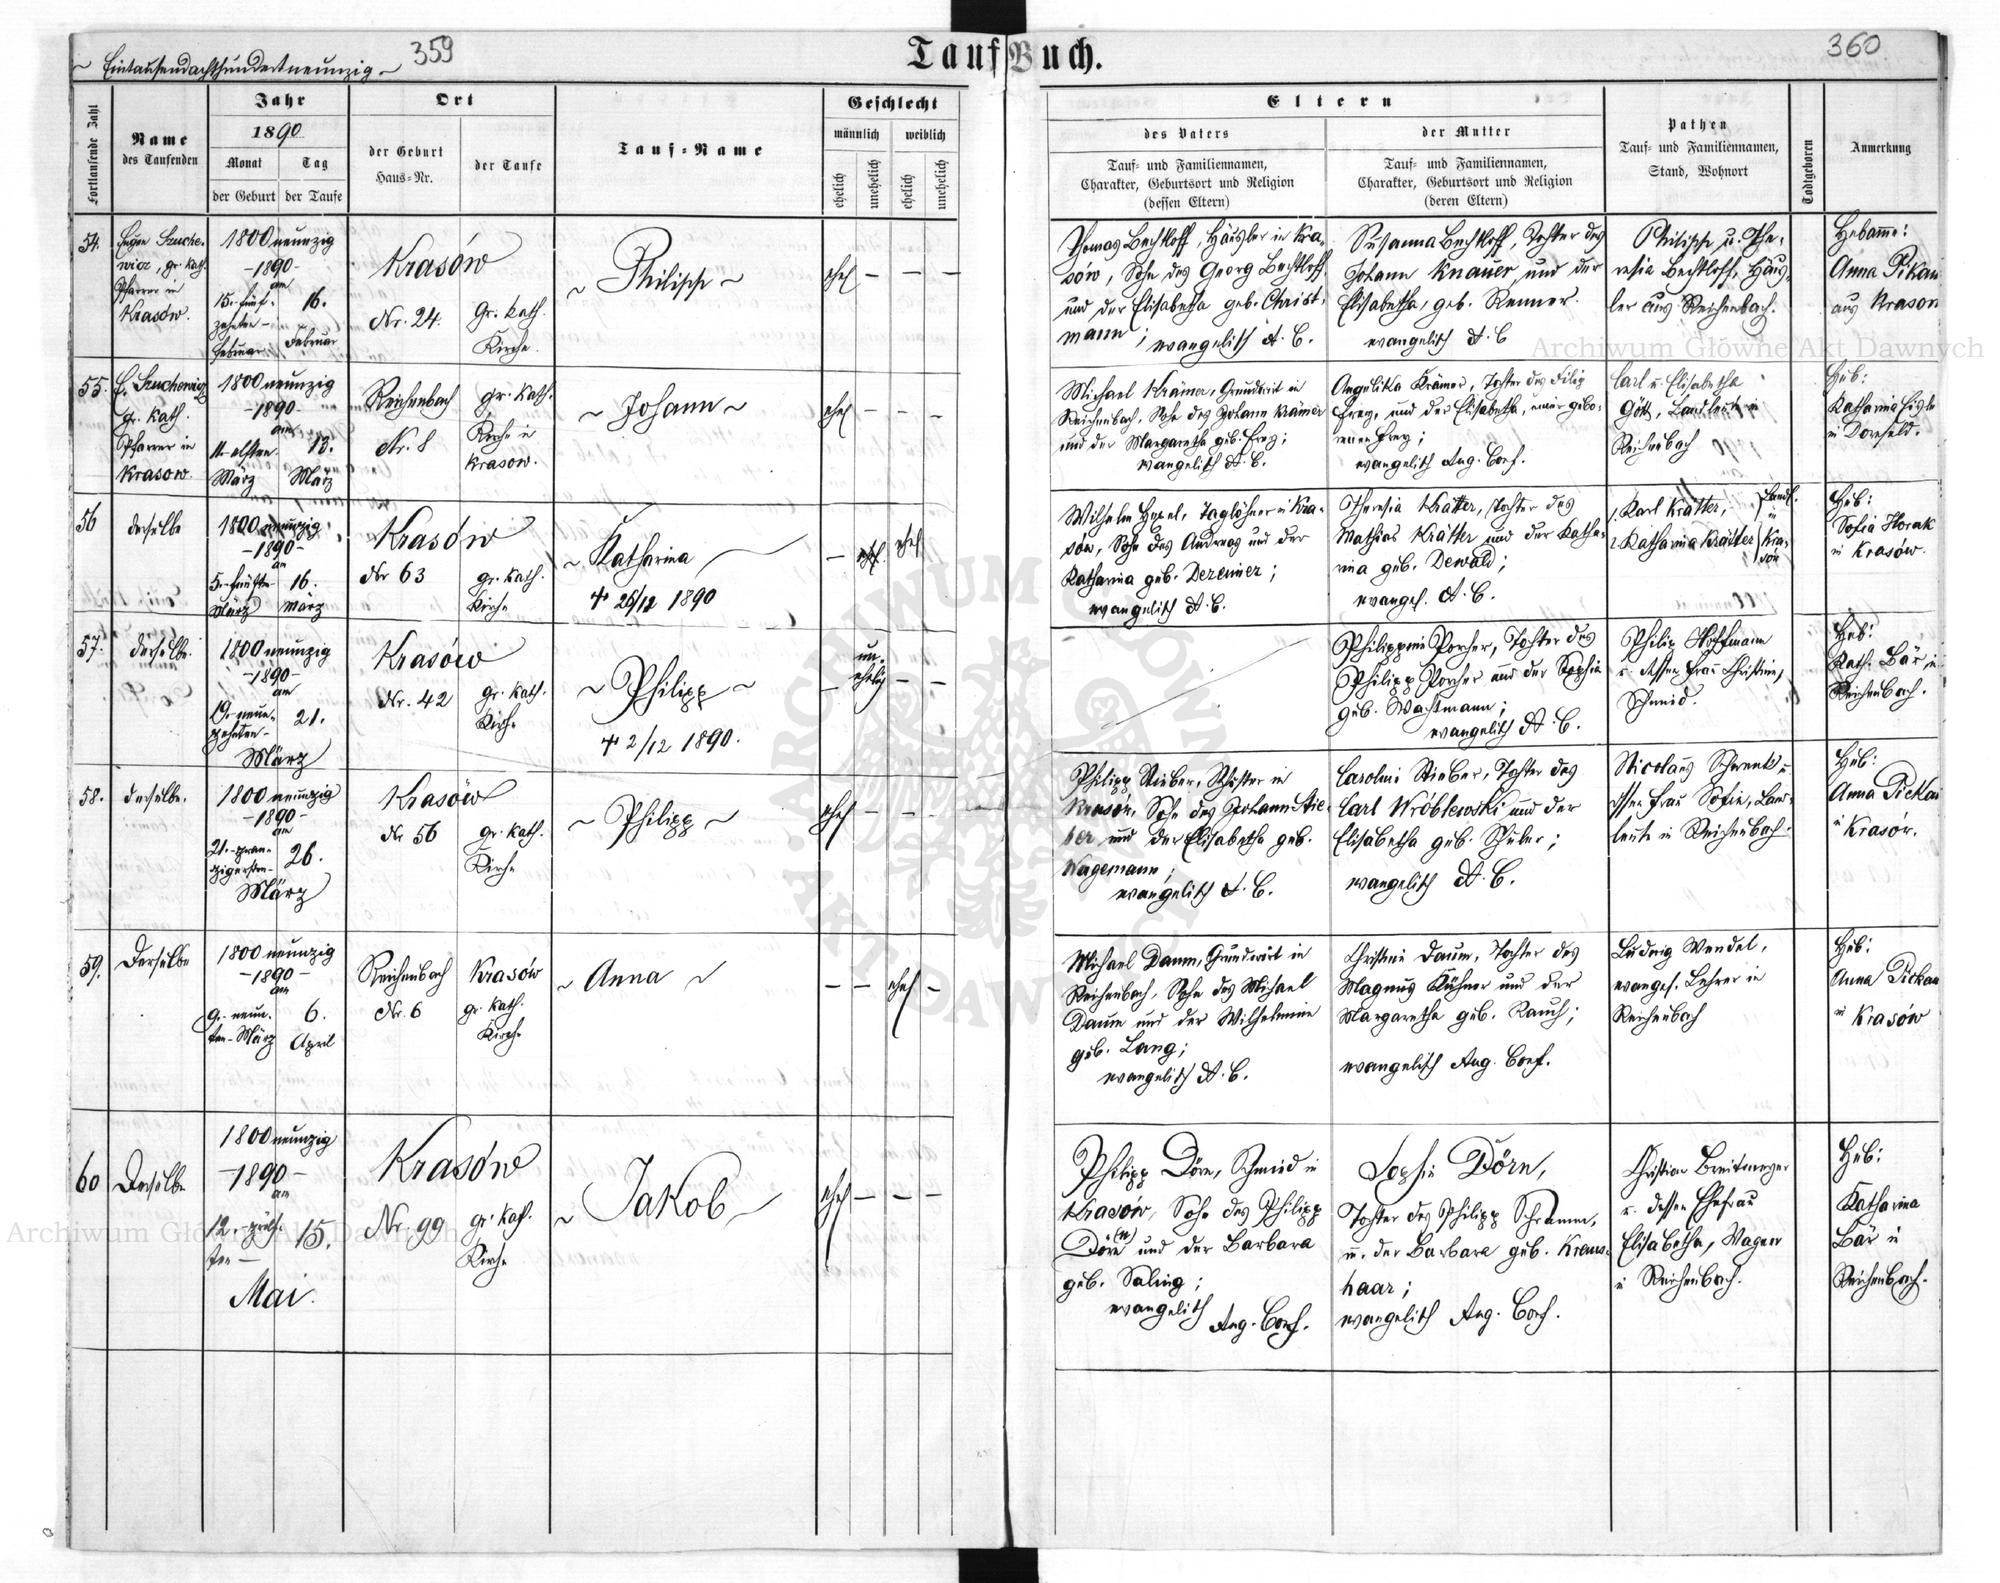 359
~ Eintausendachthundertneunzig ~
Tauf Buch.
360
Fortlaufende Zahl
Name
des Taufenden
Jahr
1890
Monat
Tag
der Geburt
der Taufe
Ort
der Geburt
Haus-Nr.
der Taufe
Tauf-Name
Geschlecht
männlich
weiblich
ehelich
unehelich
ehelich
unehelich
Eltern
des Vaters
Tauf- und Familiennamen,
Charakter, Geburtsort und Religion
(dessen Eltern)
der Mutter
Tauf- und Familiennamen,
Charakter, Geburtsort und Religion
(deren Eltern)
Pathen
Tauf- und Familiennamen,
Stand, Wohnort
Todtgeboren
Anmerkung
54.
Eugen Szuche-
wicz, gr. kath.
Pfarrer in
Krasów.
1800 neunzig
-1890-
am
15.-fünf-
zehnten-
Februar
16.
Februar
Krasów
Nr. 24.
gr. kath.
Kirche.
~ Philipp ~
ehel — — —
Thomas Bechtloff, Häusler in Kra-
sów, Sohn des Georg Bechtloff
und der Elisabetha geb. Christ-
mann; evangelisch A. C.
Susanna Bechtloff, Tochter des
Johann Knauer, und der
Elisabetha, geb. Renner.
evangelisch A. C
Philipp u. The-
resia Bechtloff, Häus-
ler aus Reichenbach.
Hebamme:
Anna Pikau
aus Krasow
55.
E. Szuchewicz
gr. kath.
Pfarrer in
Krasow.
1800 neunzig
-1890-
am
11.-elften
März
13.
März
Reichenbach
Nr. 8
gr. kath.
Kirche in
Krasow.
~ Johann ~
ehel — — —
Michael Krämer, Grundwirt in
Reichenbach, Sohn des Johann Krämer
und der Margaretha geb. Frey;
evangelisch A. C.
Angelika Krämer, Tochter des Filip
Frey, und der Elisabetha, einer gebo-
renen Frey;
evangelisch Aug. Conf.
Carl u. Elisabetha
Götz, Landleute in
Reichenbach
Heb:
Katharina
in Dornfeld.
56
derselbe
1800 neunzig
-1890-
am
5.-fünfte
März
16.
März
Krasów
Nr 63
gr. kath.
Kirche
~ Katharina
+ 26/12 1890
— ehel. ehel
Wilhelm Hexel, Taglöhner in Kra-
sów, Sohn des Andreas und der
Katharina geb. Derenner;
evangelisch A. C.
Theresia Krätter, Tochter des
Mathias Krätter und der Katha-
rina geb. Dewald;
evangel. A. C.
1. Karl Krätter,
2. Katharina Krätter
Landl.
in
Kra-
sów
Heb:
Sofia Horak
in Krasów.
57.
derselbe.
1800 neunzig
-1890-
am
19.-neun-
zehnten-
21.
März
Krasów
Nr. 42
gr. kath.
Kirche
~ Philipp ~
+ 2/12 1890.
— un-
ehelig — —
Philippine Porcher, Tochter des
Philipp Porcher und der Sophia
geb. Wachtmann;
evangelisch A. C.
Philip Hoffmann
u. dessen Frau Christine,
Schmid.
Heb:
Kath. Bär in
Reichenbach.
58.
derselbe.
1800 neunzig
-1890-
am
21.-zwan-
zigersten-
26.
März
Krasów
Nr 56
gr. kath.
Kirche
~ Philipp ~
ehel — — —
Philipp Stieber, Schuster in
Krasów, Sohn des Johann Stie-
ber und der Elisabetha geb.
Wagemann;
evangelisch A. C.
Carolina Stieber, Tochter des
Carl Wróblewski und der
Elisabetha geb. Schuler;
evangelisch A. C.
Nicolaus Schwenk u.
dessen Frau Sofie, Land-
leute in Reichenbach.
Heb:
Anna Pickau
in Krasów.
59.
Derselbe
1800 neunzig
-1890-
am
9.-neun-
ten-März
6.
April
Reichenbach
Nr. 6
Krasów
gr. kath.
Kirche
~ Anna ~
— — ehel —
Michael Daum, Grundwirt in
Reichenbach, Sohn des Michael
Daum und der Wilhelmine
geb. Lang;
evangelisch A. C.
Christine Daum, Tochter des
Magnus Kühner und der
Margaretha geb. Rauch;
evangelisch Aug. Conf.
Ludwig Wendel,
evangel. Lehrer in
Reichenbach
Heb:
Anna Pickau
in Krasów
60
Derselbe
1800 neunzig
-1890-
am
12.-zwölf-
ten —
15.
Mai.
Krasów
Nr 99
gr. kath.
Kirche
~ Jakob ~
ehel — — —
Philipp Dörn, Schmied in
Krasów, Sohn des Philipp
Dörn und der Barbara
geb. Saling;
evangelisch
Aug. Conf.
Sophie Dörn,
Tochter des Philipp Schramm,
u. der Barbara geb. Kraus-
haar;
evangelisch Aug. Conf.
Christian Breitmeyer
u. dessen Ehefrau
Elisabetha, Wagner
in Reichenbach.
Heb:
Katharina
Bär in
Reichenbach.
Archiwum Główne Akt Dawnych
Archiwum Główne Akt Dawnych
ARCHIWUM GŁÓWNE AKT DAWNYCH